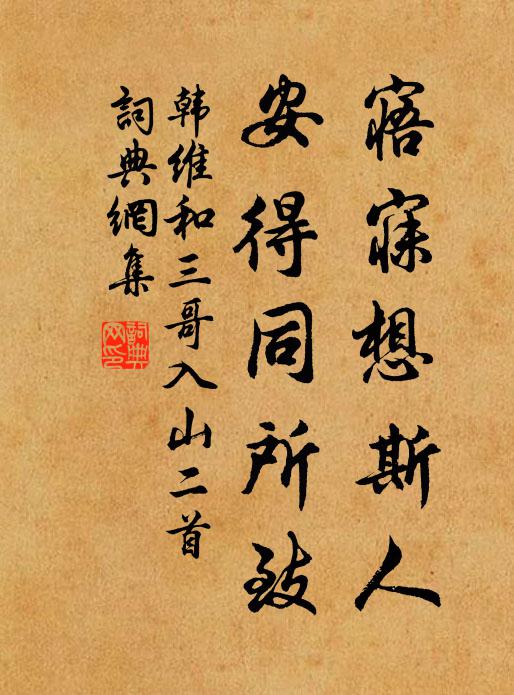 寤寐想斯人
安得同所致
韩维和三哥入山二首
詞典網集
詞典网印